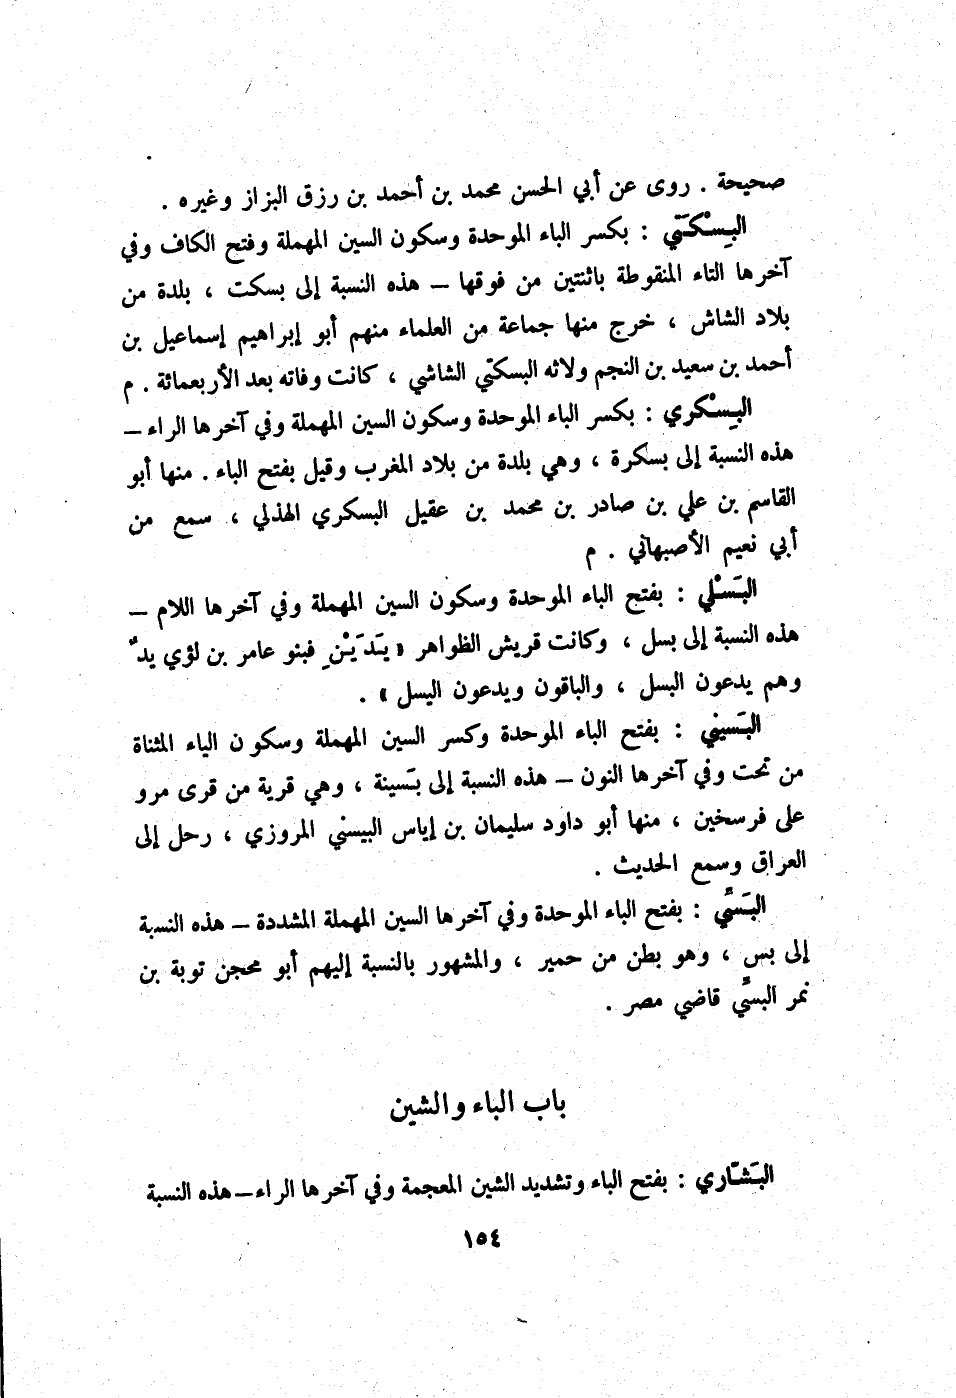 صحيحة . روى عن أبي الحسن محمد بن أحمد بن رزق البزاز وغيره .
البِسْكَتي : بكسر الباء الموحدة وسكون السين المهملة وفتح الكاف وفي
آخرها التاء المنقوطة باثنتين من فوقها – هذه النسبة إلى بسكت ، بلدة من
بلاد الشاش ، خرج منها جماعة من العلماء منهم أبو إبراهيم إسماعيل بن
أحمد بن سعيد بن النجم ولاثه البسكتي الشاشي ، كانت وفاته بعد الأربعمائة . م
البِسْكري : بكسر الباء الموحدة وسكون السين المهملة وفي آخرها الراء –
هذه النسبة إلى بسكرة ، وهي بلدة من بلاد المغرب وقيل بفتح الباء . منها أبو
القاسم بن علي بن صادر بن محمد بن عقيل البسكري الهذلي ، سمع من
أبي نعيم الأصبهاني . م
البَسْلي : بفتح الباء الموحدة وسكون السين المهملة وفي آخرها اللام –
هذه النسبة إلى بسل ، وكانت قريش الظواهر « يَدَيْنِ فبنو عامر بن لؤي يدٌ
وهم يدعون البسل ، والباقون ويدعون اليسل » .
البَسيني : بفتح الباء الموحدة وكسر السين المهملة وسكون الياء المثناة
من تحت وفي آخرها النون – هذه النسبة إلى بَسينة ، وهي قرية من قرى مرو
على فرسخين ، منها أبو داود سليمان بن إياس البيسني المروزي ، رحل إلى
العراق وسمع الحديث .
البَسّي : بفتح الباء الموحدة وفي آخرها السين المهملة المشددة – هذه النسبة
إلى بس ، وهو بطن من حمير ، والمشهور بالنسبة إليهم أبو محجن توبة بن
نمر البسّي قاضي مصر .
باب الباء والشين
البَشّاري : بفتح الباء وتشديد الشين المعجمة وفي آخرها الراء – هذه النسبة
١٥٤